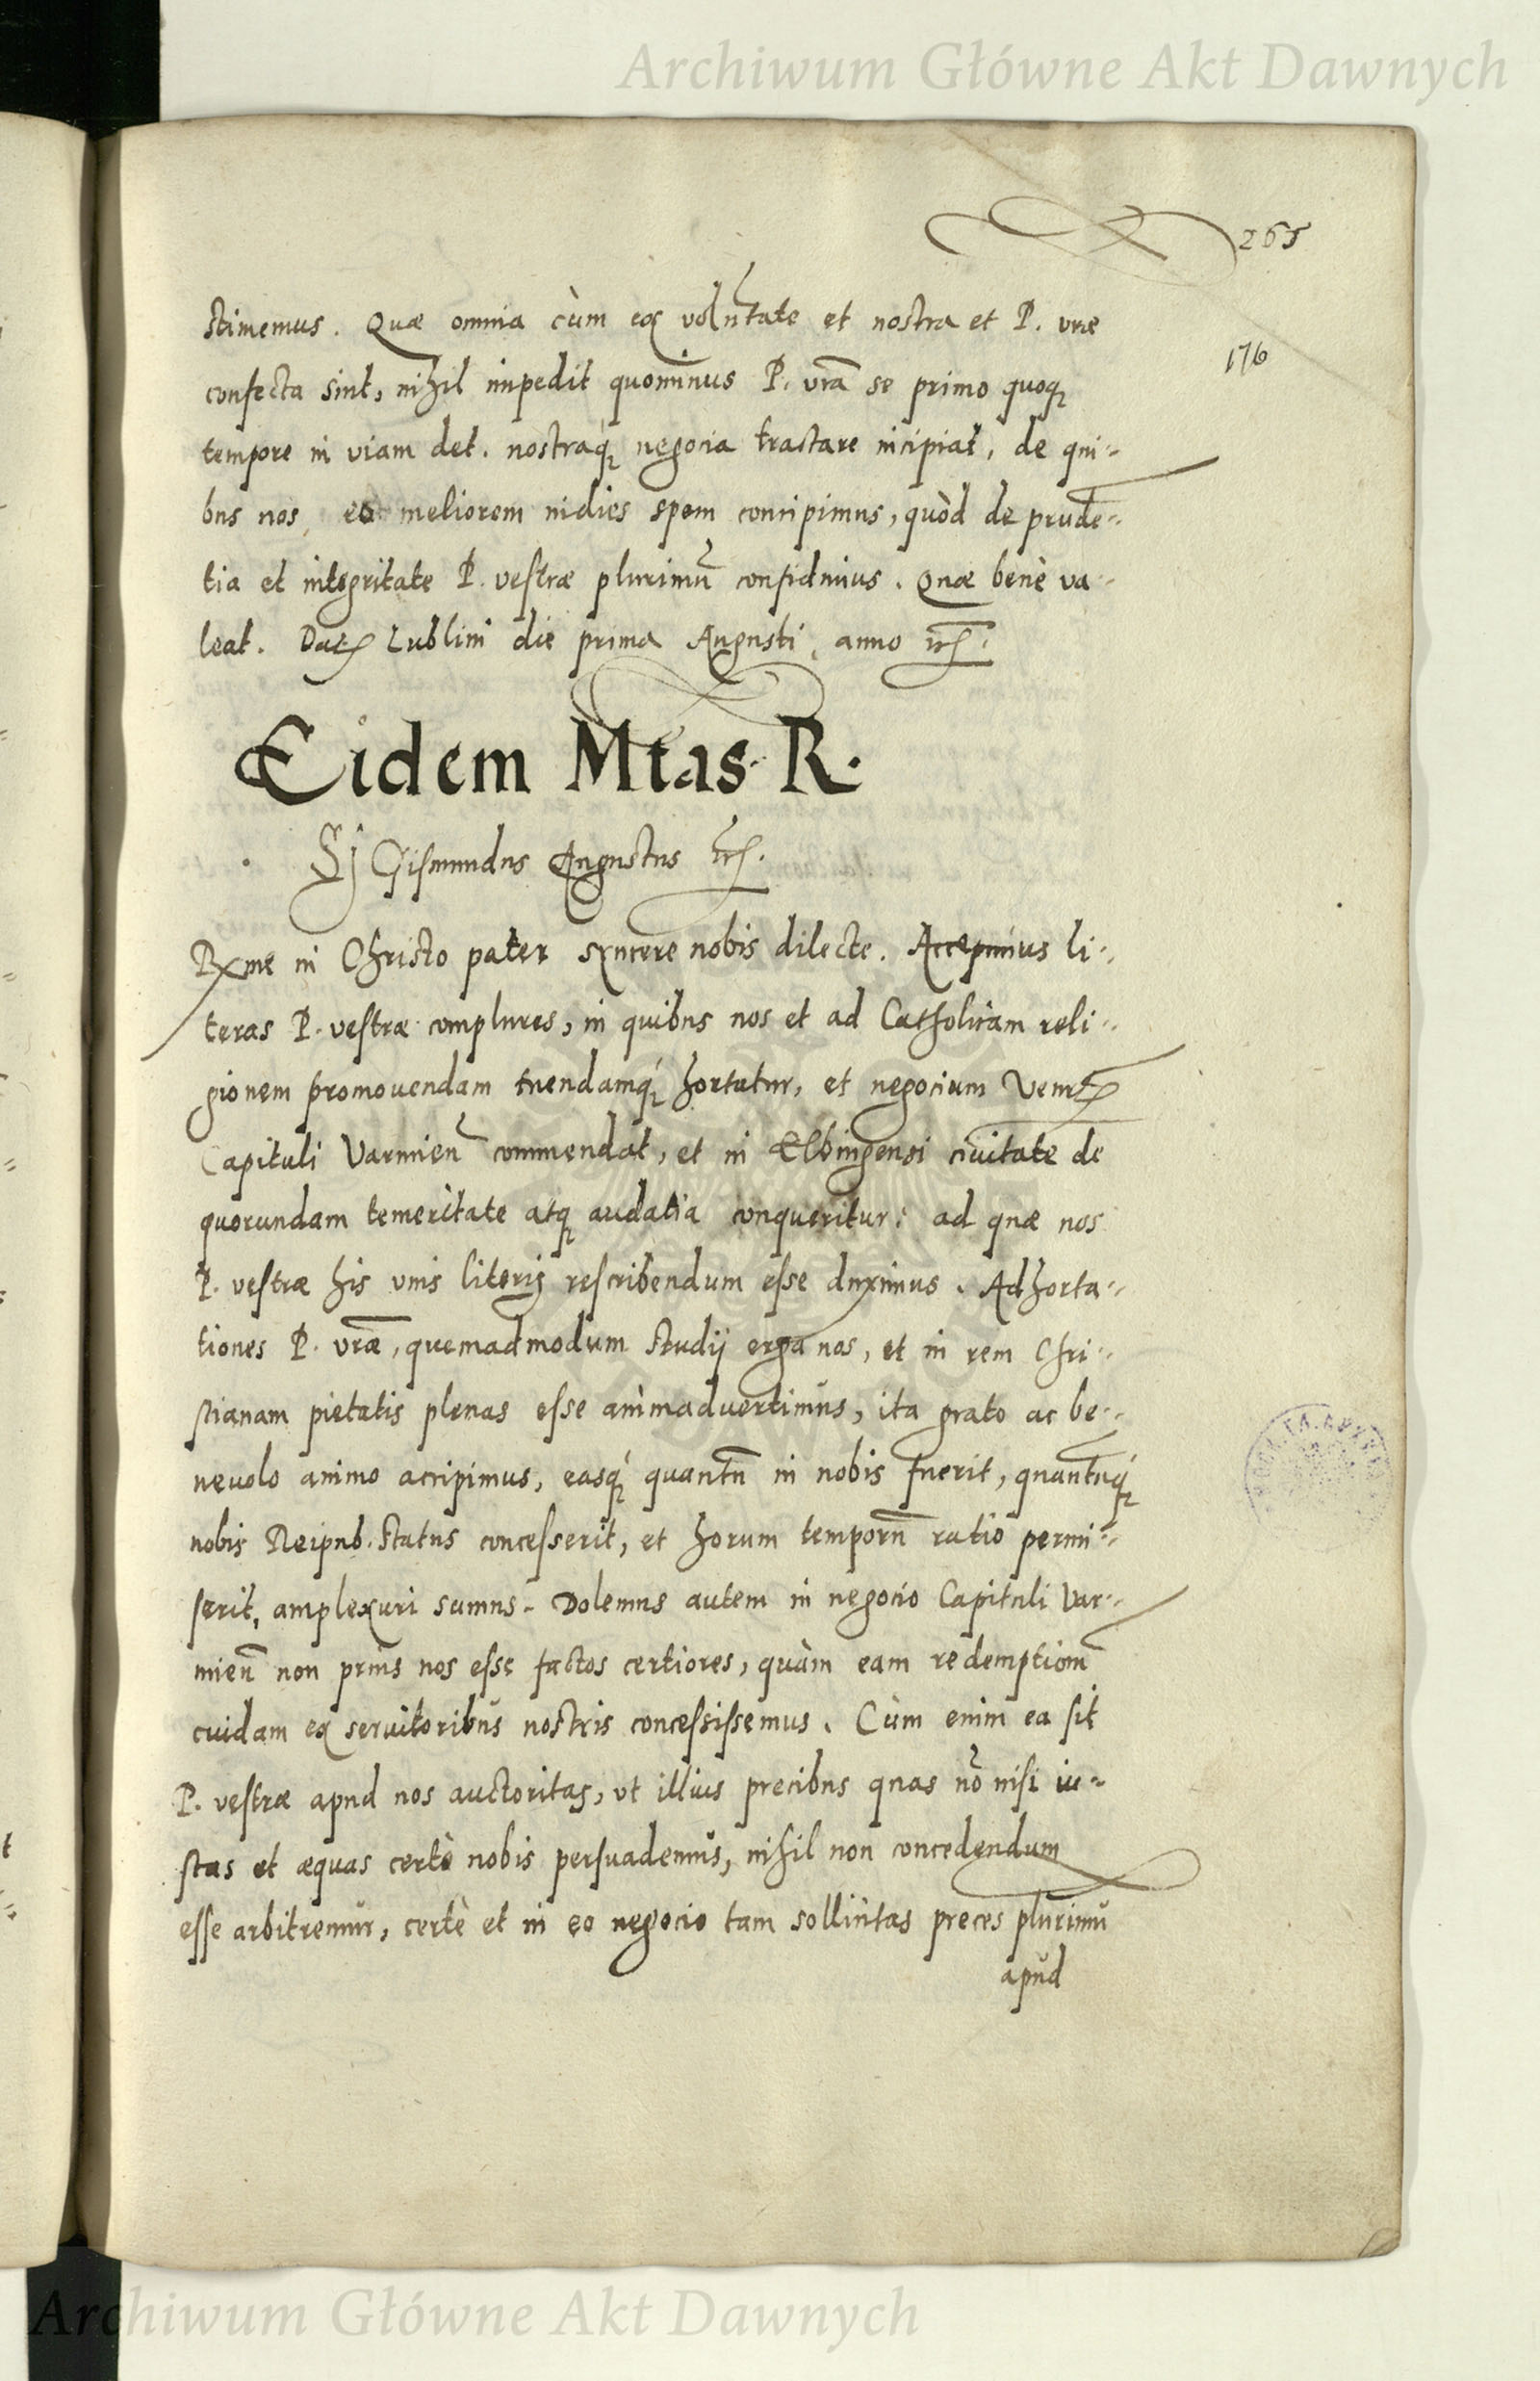 Archiwum Główne Akt Dawnych
265
stimemus. Quæ omnia cùm ex volūtate et nostra et P. vræ
176
confecta sint, nihil impedit quominus P. vrā se primo quoq
tempore in viam det. nostraq́ negocia tractare incipiat, de qui-
bus nos eo meliorem indies spem concipimus, quòd de prudē-
tia et integritate P. vestræ plurimū confidimus. Quæ benè va-
leat. Dat Lublini die prima Augusti, anno etc.
Eidem Mtas. R.
Sigismundus Augustus etc.
Rxme in Christo pater syncere nobis dilecte. Accepimus li-
teras P. vestræ complures, in quibus nos et ad Catholicam reli-
gionem promouendam tuendamq́ hortatur, et negocium Ven
Capituli Varmieñ commendat, et in Elbingensi ciuitate de
quorundam temeritate atq audatia conqueritur: ad quæ nos
P. vestræ his vnis literis rescribendum esse duximus. Adhorta-
tiones P. vræ, quemadmodum studij erga nos, et in rem Chri-
stianam pietatis plenas esse animaduertimus, ita grato ac be-
neuolo animo accipimus, easq́ quantū in nobis fuerit, quantūq́
nobis Reipub. status concesserit, et horum temporū ratio permi-
serit, amplexuri sumus. Dolemus autem in negocio Capituli Var-
mieñ non prius nos esse factos certiores, quàm eam redemptionē
cuidam ex seruitoribus nostris concessissemus. Cùm enim ea sit
P. vestræ apud nos auctoritas, vt illius precibus quas nō nisi iu-
stas et æquas certè nobis persuademus, nihil non concedendum
esse arbitremur, certè et in eo negocio tam sollicitas preces plurimū
apud
Archiwum Główne Akt Dawnych